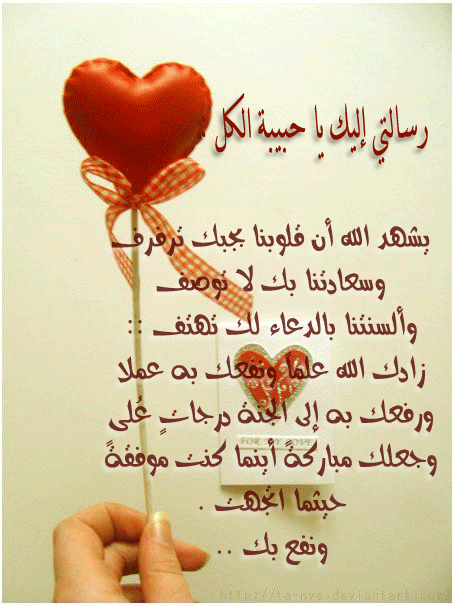 رسالتي إليك يا حبيبة الكل :
يشهد الله أن قلوبنا بحبك ترفرف
وسعادتنا بك لا توصف
وألسنتنا بالدعاء لك تهتف ::
زادك الله علماً ونفعك به عملا
ورفعك به إلى الجنة درجاتٍ عُلى
وجعلك مباركةً أينما كنت موفقةً
حيثما اتجهت .
ونفع بك ..
FOR MY LOVE
http://ta-nya.deviantart.com/